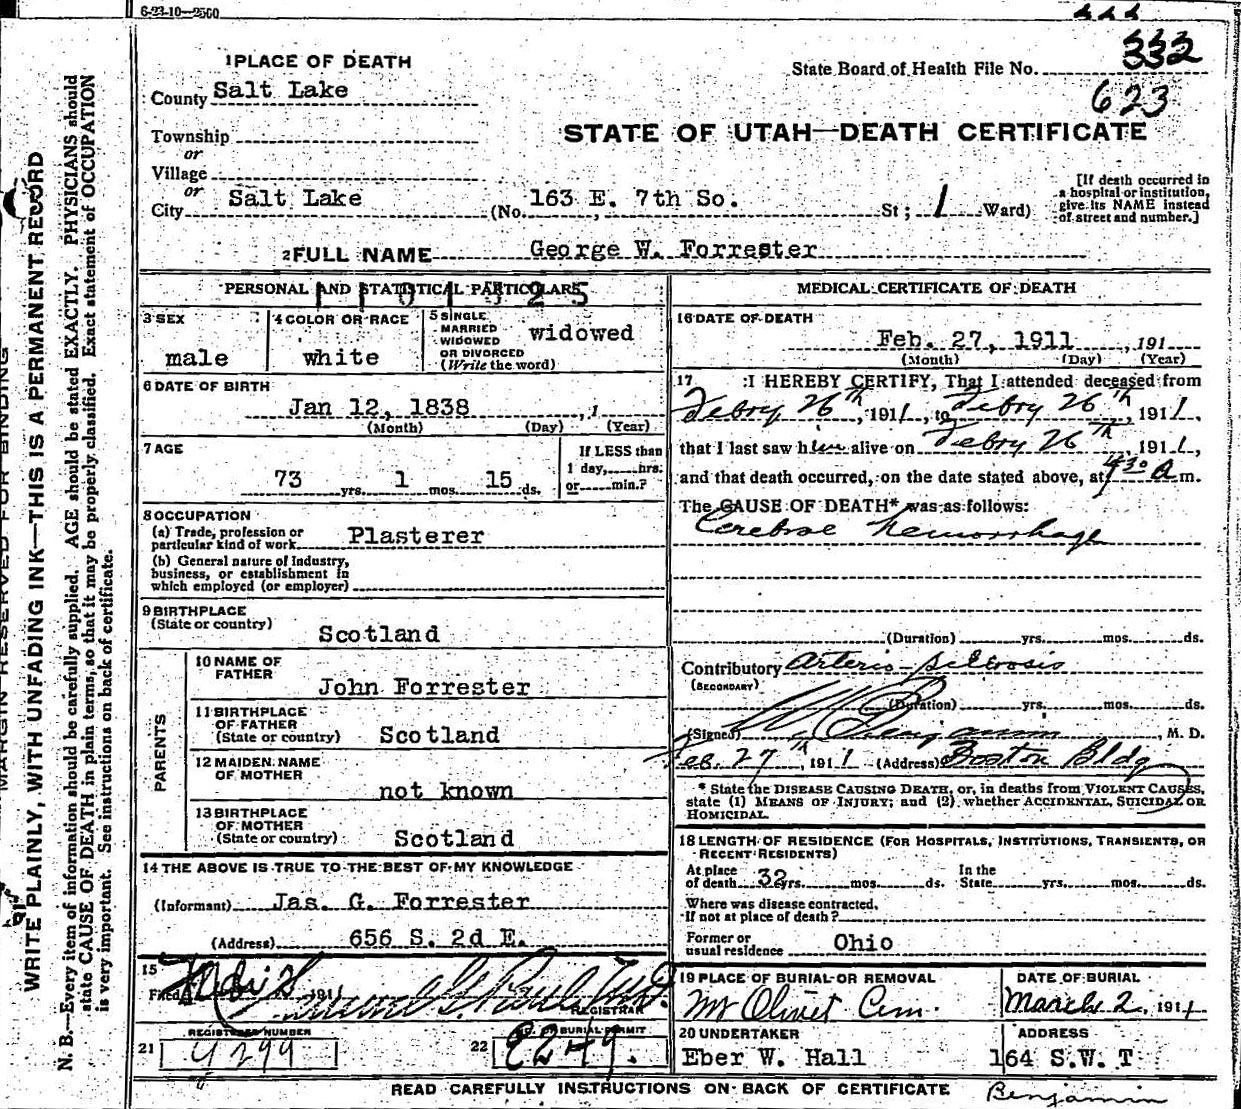 6-23-10-2500
332
1 PLACE OF DEATH
State Board of Health File No. 332
County Salt Lake
623
STATE OF UTAH—DEATH CERTIFICATE
Township
or
Village
or
City Salt Lake (No. 163 E. 7th So. St; 1 Ward)
[If death occurred in
a hospital or institution,
give its NAME instead
of street and number.]
2 FULL NAME George W. Forrester
PERSONAL AND STATISTICAL PARTICULARS
3 SEX
male
4 COLOR OR RACE
white
5 SINGLE
MARRIED
WIDOWED
OR DIVORCED
(Write the word)
widowed
6 DATE OF BIRTH
Jan 12, 1838 , 1
(Month) (Day) (Year)
7 AGE
73 yrs. 1 mos. 15 ds.
If LESS than
1 day, hrs.
or min.?
8 OCCUPATION
(a) Trade, profession or
particular kind of work Plasterer
(b) General nature of industry,
business, or establishment in
which employed (or employer)
9 BIRTHPLACE
(State or country)
Scotland
PARENTS
10 NAME OF
FATHER
John Forrester
11 BIRTHPLACE
OF FATHER
(State or country) Scotland
12 MAIDEN NAME
OF MOTHER
not known
13 BIRTHPLACE
OF MOTHER
(State or country) Scotland
14 THE ABOVE IS TRUE TO THE BEST OF MY KNOWLEDGE
(Informant) Jas. G. Forrester
(Address) 656 S. 2d E.
15
Filed 191
REGISTRAR
REGISTERED NUMBER
21 4299
NO. OF BURIAL PERMIT
22 E249.
MEDICAL CERTIFICATE OF DEATH
16 DATE OF DEATH
Feb. 27, 1911 , 191
(Month) (Day) (Year)
17 I HEREBY CERTIFY, That I attended deceased from
Febry 26th, 1911, to Febry 26th, 1911,
that I last saw him alive on Febry 26th, 1911,
and that death occurred, on the date stated above, at a m.
The CAUSE OF DEATH* was as follows:
Cerebral hemorrhage
(Duration) yrs. mos. ds.
Contributory Arterio-sclerosis
(SECONDARY)
(Duration) yrs. mos. ds.
(Signed) Benjamin, M. D.
Feb. 27th, 1911 (Address) Boston Bldg
* State the DISEASE CAUSING DEATH, or, in deaths from VIOLENT CAUSES,
state (1) MEANS OF INJURY; and (2) whether ACCIDENTAL, SUICIDAL OR
HOMICIDAL.
18 LENGTH OF RESIDENCE (FOR HOSPITALS, INSTITUTIONS, TRANSIENTS, OR
RECENT RESIDENTS)
At place
of death 32 yrs. mos. ds.
In the
State yrs. mos. ds.
Where was disease contracted,
If not at place of death?
Former or
usual residence Ohio
19 PLACE OF BURIAL OR REMOVAL
Mt Olivet Cem.
DATE OF BURIAL
March 2, 1911
20 UNDERTAKER
Eber W. Hall
ADDRESS
164 S.W. T
READ CAREFULLY INSTRUCTIONS ON BACK OF CERTIFICATE
Benjamin
MARGIN RESERVED FOR BINDING
WRITE PLAINLY, WITH UNFADING INK—THIS IS A PERMANENT RECORD
N. B.—Every item of information should be carefully supplied. AGE should be stated EXACTLY. PHYSICIANS should
state CAUSE OF DEATH in plain terms, so that it may be properly classified. Exact statement of OCCUPATION
is very important. See instructions on back of certificate.